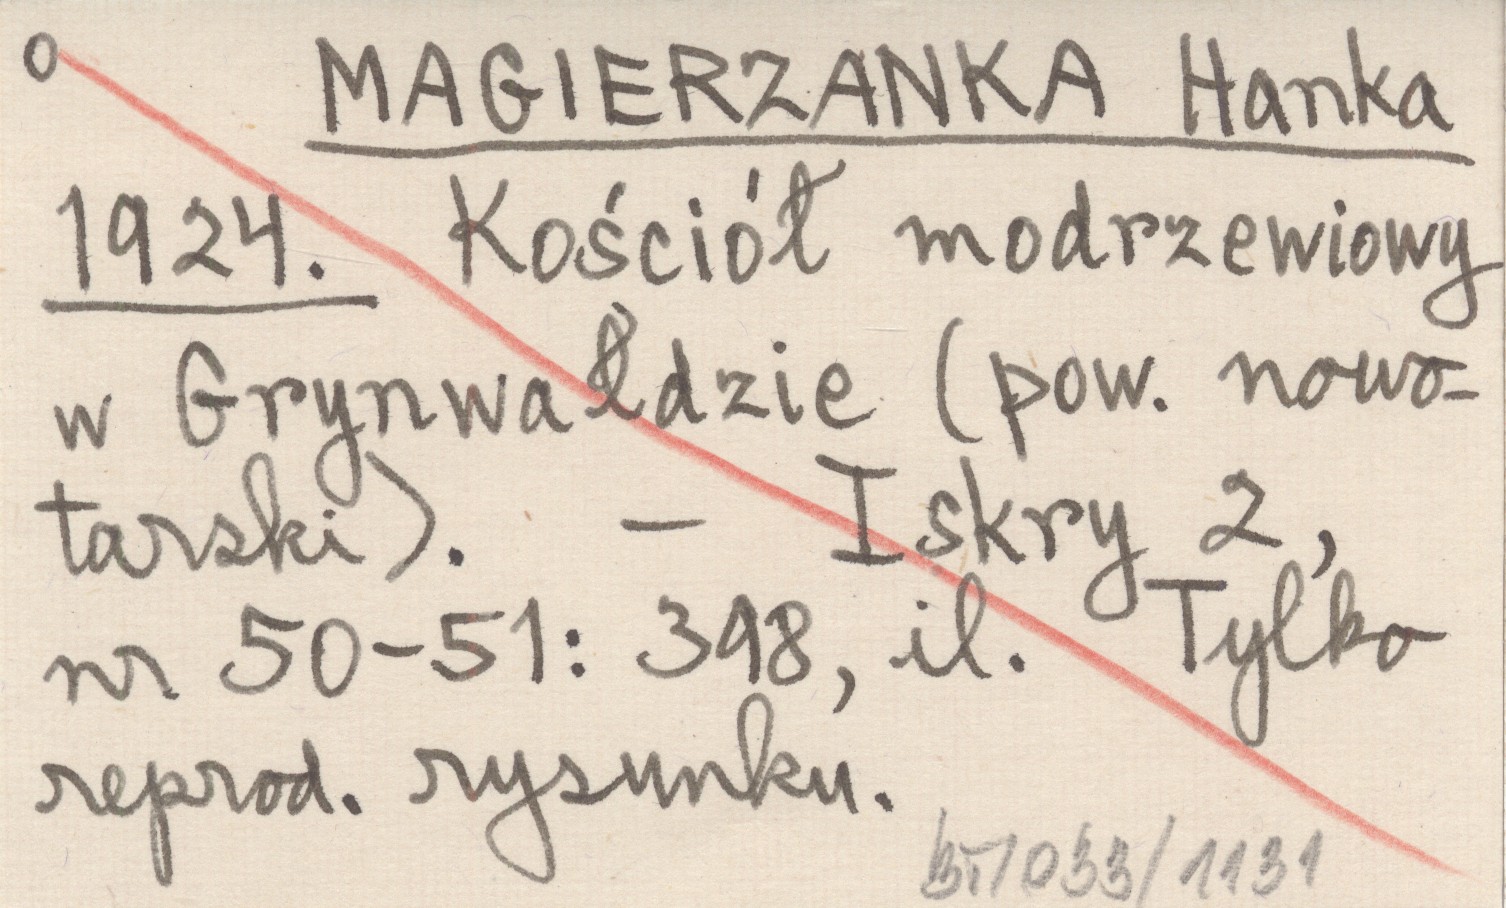 o MAGIERZANKA Hanka
1924. Kościół modrzewiowy
w Grynwałdzie (pow. nowo-
tarski). – Iskry 2,
nr 50-51: 398, il. Tylko
reprod. rysunku.
/033/1131